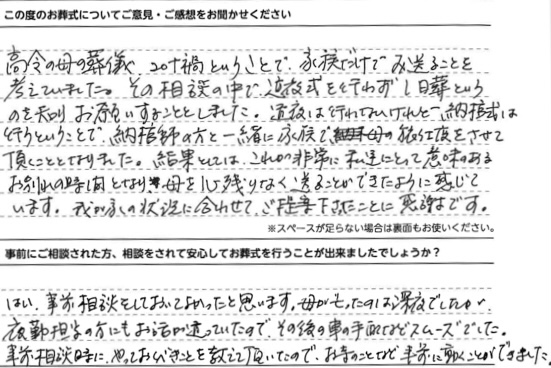 この度のお葬式についてご意見・ご感想をお聞かせください
高令の母の葬儀、コロナ禍ということで、家族だけで見送ることを
考えていました。その相談の中で通夜式を行わず1日葬という
のを知りお願いすることとしました。通夜は行わないけれど納棺式は
行うということで、納棺師の方と一緒に家族で母の旅仕度をさせて
頂くこととなりました。結果としては、これが非常に私達にとって意味のある
お別れの時間となり母を心残りなく送ることができたように感じて
います。我が家の状況に合わせて、ご提案下さったことに感謝です。
※スペースが足らない場合は裏面もお使いください。
事前にご相談された方、相談をされて安心してお葬式を行うことが出来ましたでしょうか？
はい、事前相談をしておいてよかったと思います。母が亡ったのは深夜でしたが
夜勤担当の方にもお話が通っていたので、その後の車の手配などスムーズでした。
事前相談時に、やっておくべきことを教えて頂いたので、お寺のことなど事前に動くことができました。